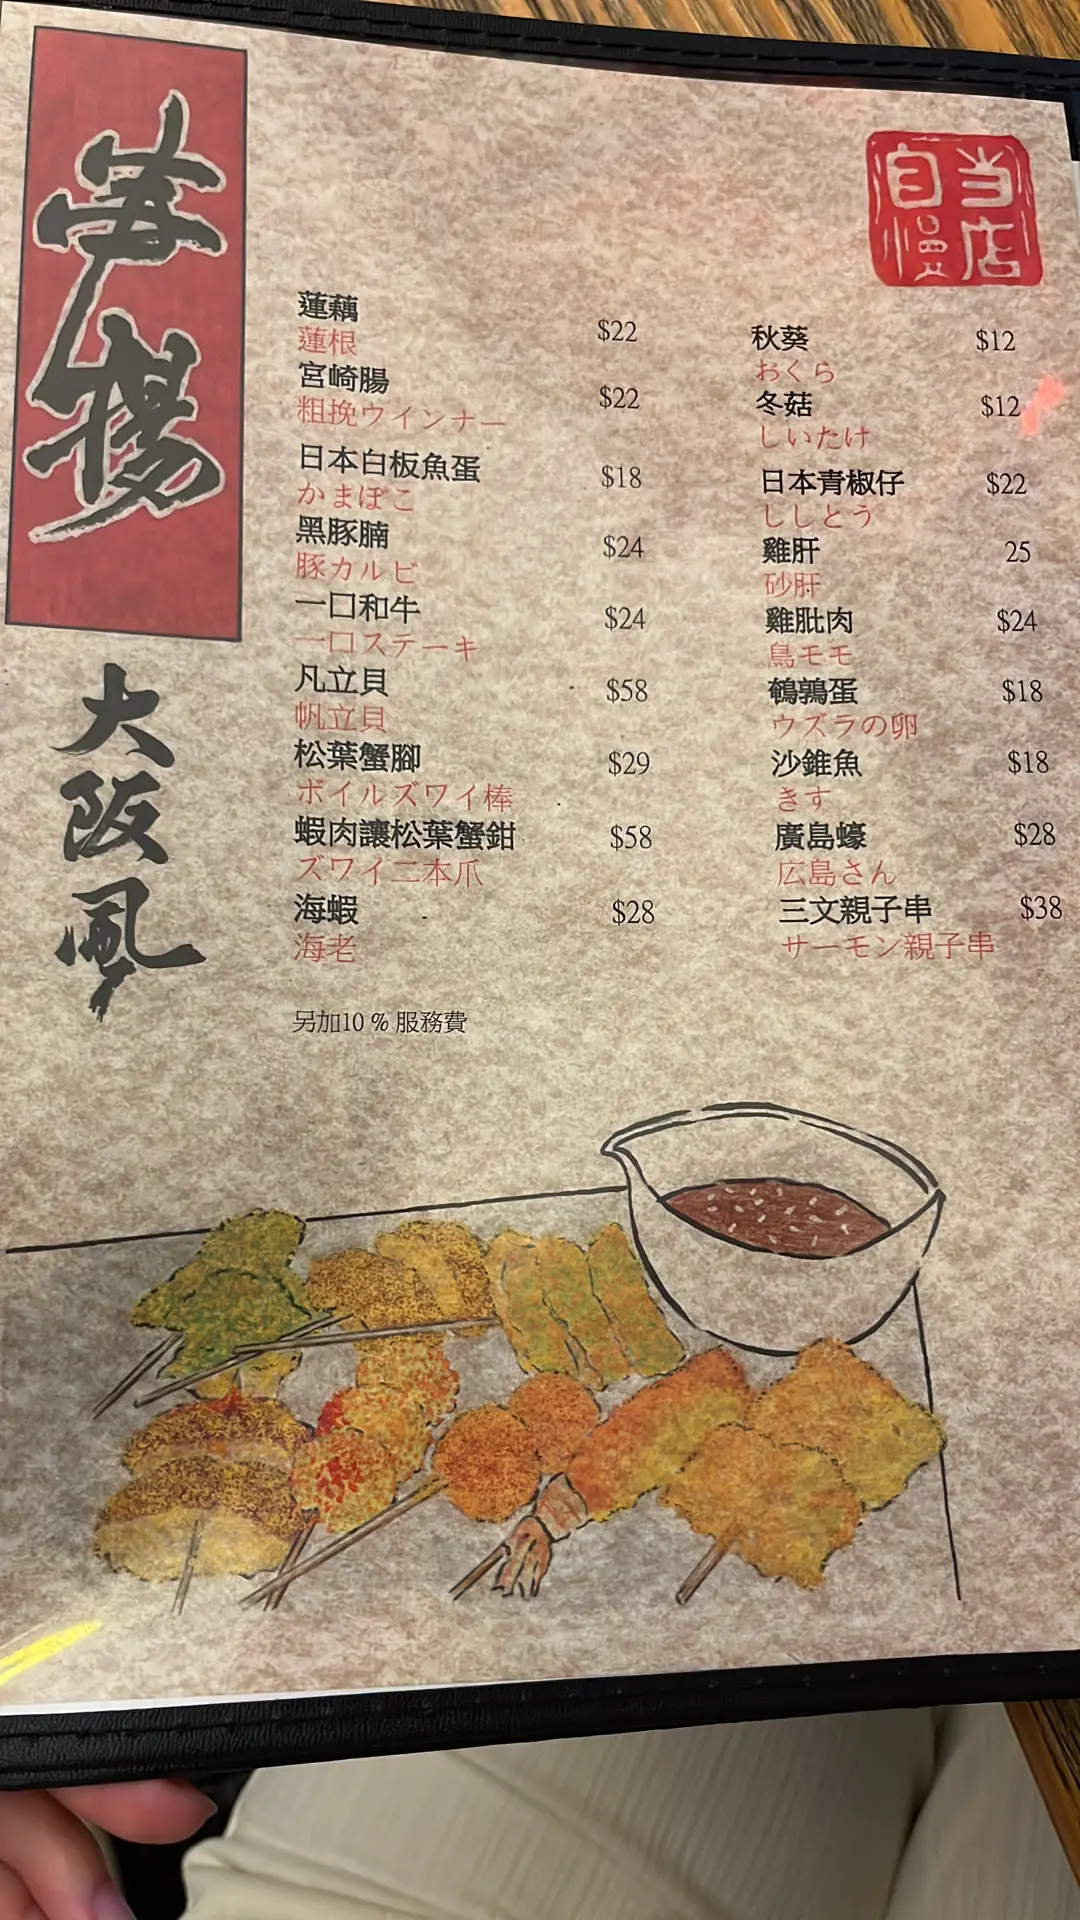 串揚
大阪風
当店
自慢
蓮藕 $22
蓮根
宮崎腸 $22
粗挽ウインナー
日本白板魚蛋 $18
かまぼこ
黑豚腩 $24
豚カルビ
一口和牛 $24
一口ステーキ
凡立貝 $58
帆立貝
松葉蟹腳 $29
ボイルズワイ棒
蝦肉讓松葉蟹鉗 $58
ズワイ二本爪
海蝦 $28
海老
秋葵 $12
おくら
冬菇 $12
しいたけ
日本青椒仔 $22
ししとう
雞肝 25
砂肝
雞肶肉 $24
鳥モモ
鵪鶉蛋 $18
ウズラの卵
沙錐魚 $18
きす
廣島蠔 $28
広島さん
三文親子串 $38
サーモン親子串
另加10 % 服務費